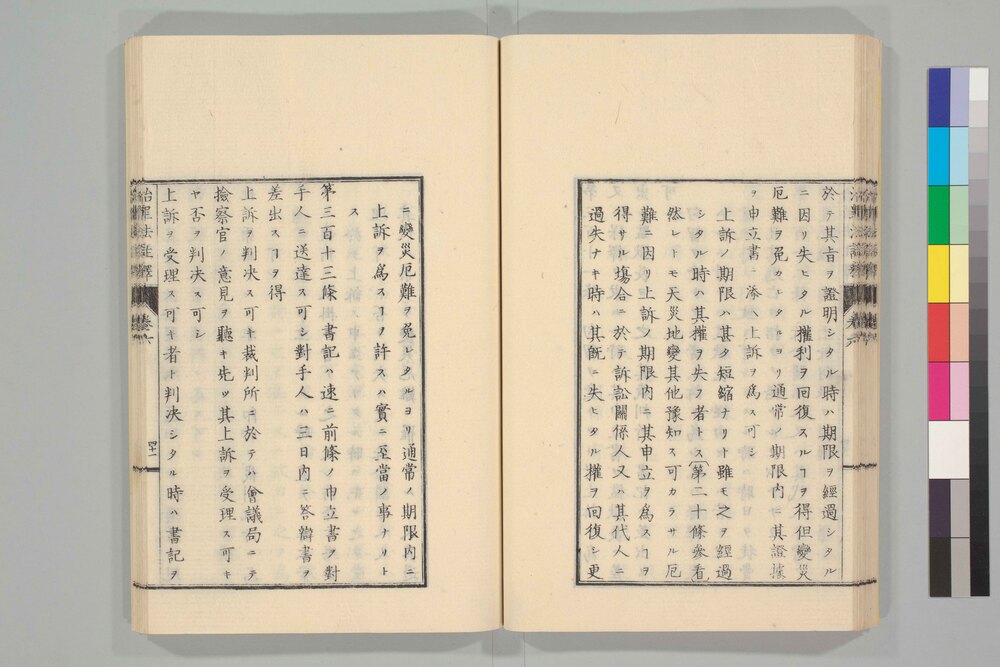 於テ其旨ヲ證明シタル時ハ期限ヲ經過シタル
ニ因リ失ヒタル權利ヲ回復スルヿヲ得但變災
厄難ヲ免カレタルヨリ通常ノ期限内ニ其證據
ヲ申立書ニ添ヘ上訴ヲ爲ス可シ
上訴ノ期限ハ甚タ短縮ナリト雖モ之ヲ經過
シタル時ハ其權ヲ失フ者トス(第二十條參看)
然レトモ天災地變其他豫知ス可カラサル厄
難ニ因リ上訴ノ期限内ニ其申立ヲ爲スヿヲ
得サル塲合ニ於テ訴訟關係人又ハ其代人ニ
過失ナキ時ハ其既ニ失ヒタル權ヲ回復シ更
ニ變災厄難ヲ免レタルヨリ通常ノ期限内ニ
上訴ヲ爲スヿヲ許スハ實ニ至當ノ事ナリト
ス
第三百十三條 書記ハ速ニ前條ノ申立書ヲ對
手人ニ送達ス可シ對手人ハ三日内ニ答辯書ヲ
差出スヿヲ得
上訴ヲ判决ス可キ裁判所ニ於テハ會議局ニテ
撿察官ノ意見ヲ聽キ先ツ其上訴ヲ受理ス可キ
ヤ否ヲ判决ス可シ
上訴ヲ受理ス可キ者ト判决シタル時ハ書記ヲ
治罪法註釋 卷六 四十二